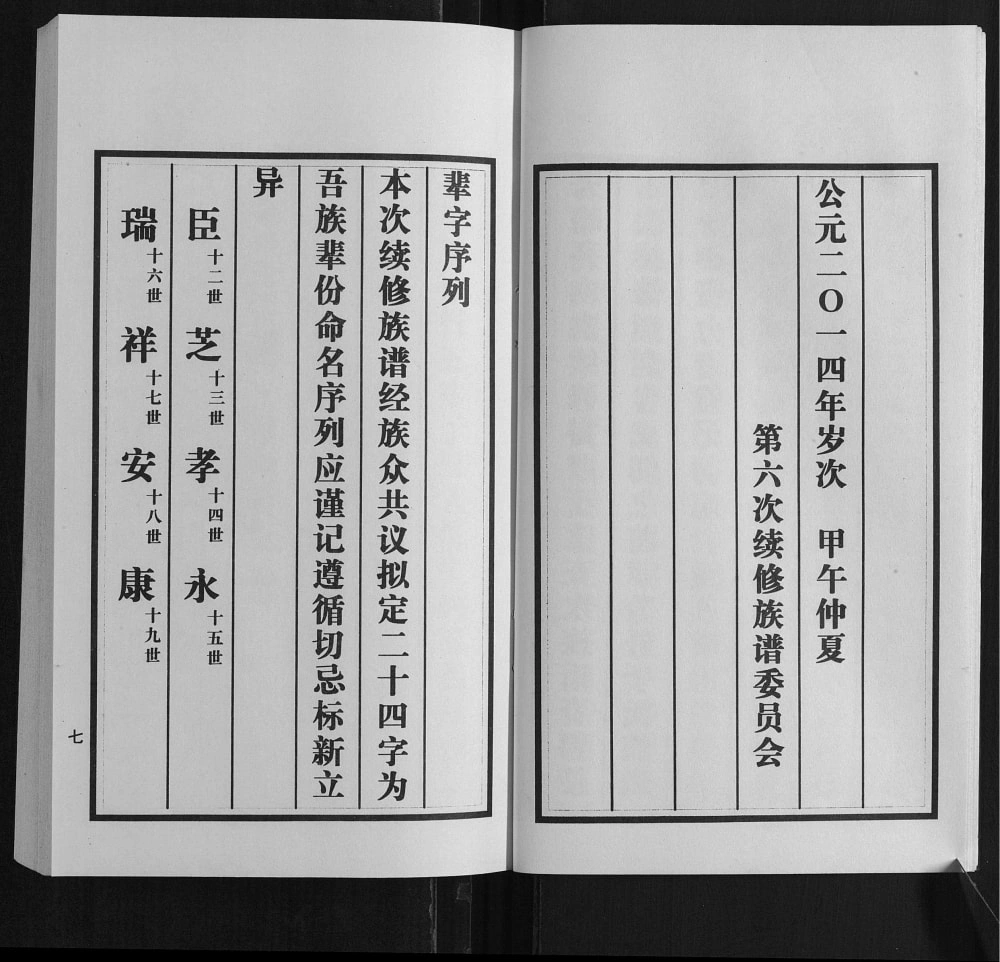 公元二〇一四年岁次　甲午仲夏
第六次续修族谱委员会
辈字序列
本次续修族谱经族众共议拟定二十四字为
吾族辈份命名序列应谨记遵循切忌标新立
异
臣十二世　芝十三世　孝十四世　永十五世
瑞十六世　祥十七世　安十八世　康十九世
七